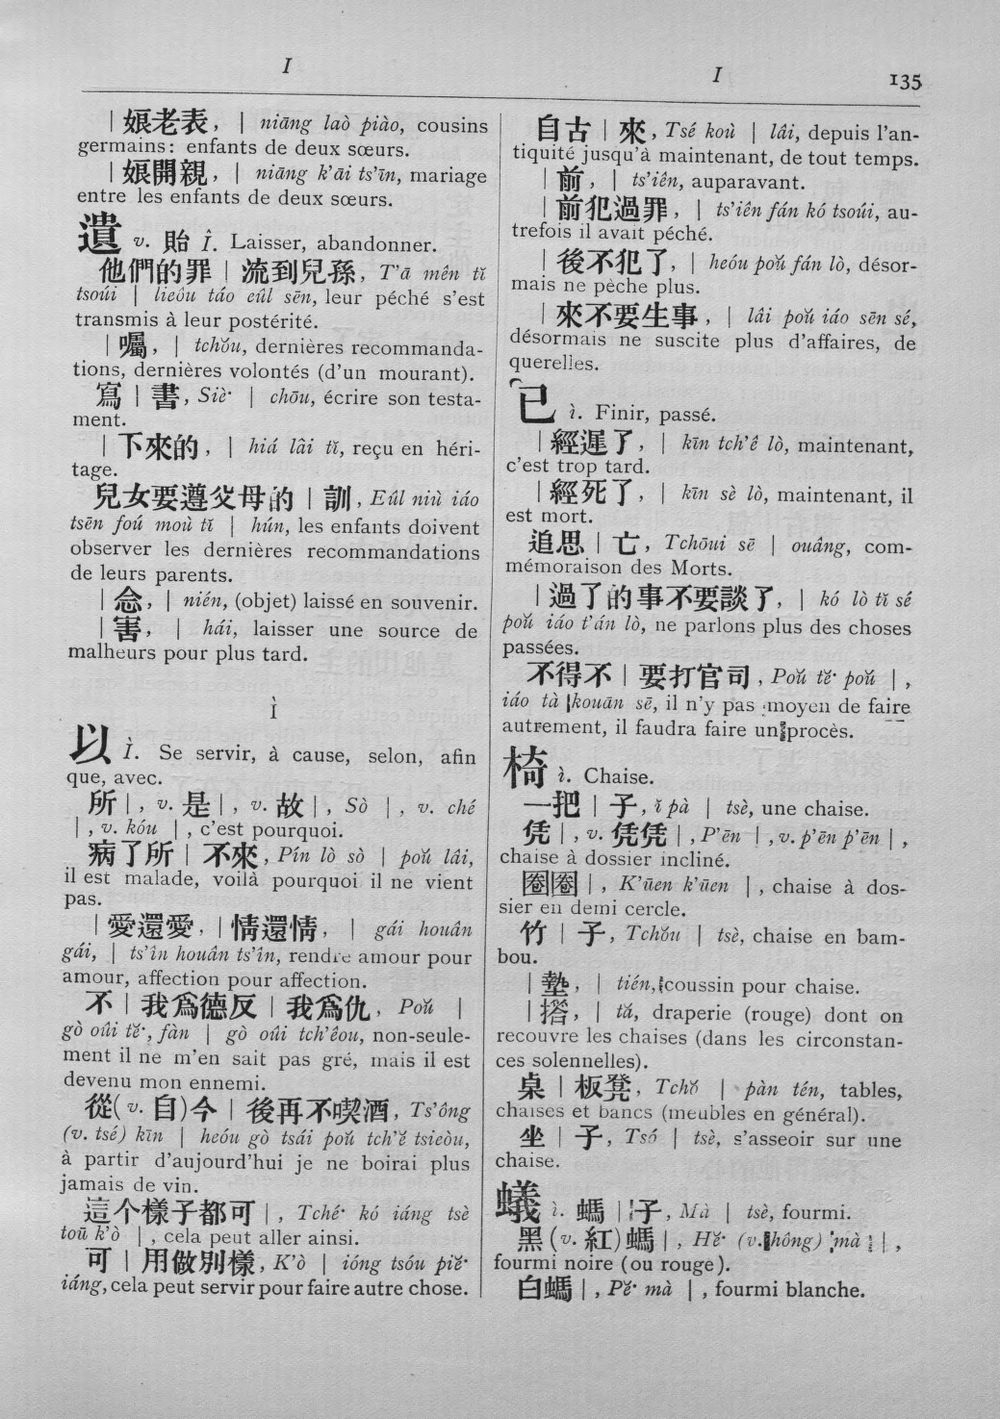 I
I
135
| 娘老表, | niāng laò piào, cousins
germains: enfants de deux sœurs.
| 娘開親, | niāng k'āi ts'īn, mariage
entre les enfants de deux sœurs.
遺 v. 貽 Î. Laisser, abandonner.
他們的罪 | 流到兒孫, T'ā mên tĭ
tsoúi | lieôu táo eûl sēn, leur péché s'est
transmis à leur postérité.
| 囑, | tchŏu, dernières recommanda-
tions, dernières volontés (d'un mourant).
寫 | 書, Siè· | chōu, écrire son testa-
ment.
| 下來的, | hiá lâi tĭ, reçu en héri-
tage.
兒女要遵父母的 | 訓, Eûl niù iáo
tsēn foú moù tĭ | hún, les enfants doivent
observer les dernières recommandations
de leurs parents.
| 念, | nién, (objet) laissé en souvenir.
| 害, | hái, laisser une source de
malheurs pour plus tard.
Ì
以 Ì. Se servir, à cause, selon, afin
que, avec.
所 | , v. 是 | , v. 故 | , Sò | , v. ché
| , v. kóu | , c'est pourquoi.
病了所 | 不來, Pín lò sò | poŭ lâi,
il est malade, voilà pourquoi il ne vient
pas.
| 愛還愛, | 情還情, | gái houân
gái, | ts'în houân ts'în, rendre amour pour
amour, affection pour affection.
不 | 我爲德反 | 我爲仇, Poŭ |
gò oûi tĕ·, fàn | gò oûi tch'êou, non-seule-
ment il ne m'en sait pas gré, mais il est
devenu mon ennemi.
從 (v. 自) 今 | 後再不喫酒, Ts'ông
(v. tsé) kīn | heóu gò tsái poŭ tch'ĕ tsieòu,
à partir d'aujourd'hui je ne boirai plus
jamais de vin.
這个樣子都可 | , Tché· kó iáng tsè
toū k'ò | , cela peut aller ainsi.
可 | 用做別樣, K'ò | ióng tsóu piĕ·
iáng, cela peut servir pour faire autre chose.
自古 | 來, Tsé koù | lâi, depuis l'an-
tiquité jusqu'à maintenant, de tout temps.
| 前, | ts'iên, auparavant.
| 前犯過罪, | ts'iên fán kó tsoúi, au-
trefois il avait péché.
| 後不犯了, | heóu poŭ fán lò, désor-
mais ne pèche plus.
| 來不要生事, | lâi poŭ iáo sēn sé,
désormais ne suscite plus d'affaires, de
querelles.
已 ì. Finir, passé.
| 經遲了, | kīn tch'ê lò, maintenant,
c'est trop tard.
| 經死了, | kīn sè lò, maintenant, il
est mort.
追思 | 亡, Tchōui sē | ouâng, com-
mémoraison des Morts.
| 過了的事不要談了, | kó lò tĭ sé
poŭ iáo t'án lò, ne parlons plus des choses
passées.
不得不 | 要打官司, Poŭ tĕ· poŭ | ,
iáo tà kouān sē, il n'y pas moyen de faire
autrement, il faudra faire un procès.
椅 ì. Chaise.
一把 | 子, ĭ pà | tsè, une chaise.
凭 | , v. 凭凭 | , P'ēn | , v. p'ēn p'ēn | ,
chaise à dossier incliné.
圈圈 | , K'ūen k'ūen | , chaise à dos-
sier en demi cercle.
竹 | 子, Tchŏu | tsè, chaise en bam-
bou.
| 墊, | tién, coussin pour chaise.
| 撘, | tă, draperie (rouge) dont on
recouvre les chaises (dans les circonstan-
ces solennelles).
桌 | 板凳, Tchŏ | pàn tén, tables,
chaises et bancs (meubles en général).
坐 | 子, Tsó | tsè, s'asseoir sur une
chaise.
蟻 ì. 螞 | 子, Mà | tsè, fourmi.
黑 (v. 紅) 螞 | , Hĕ· (v. hông) mà | ,
fourmi noire (ou rouge).
白螞 | , Pĕ· mà | , fourmi blanche.